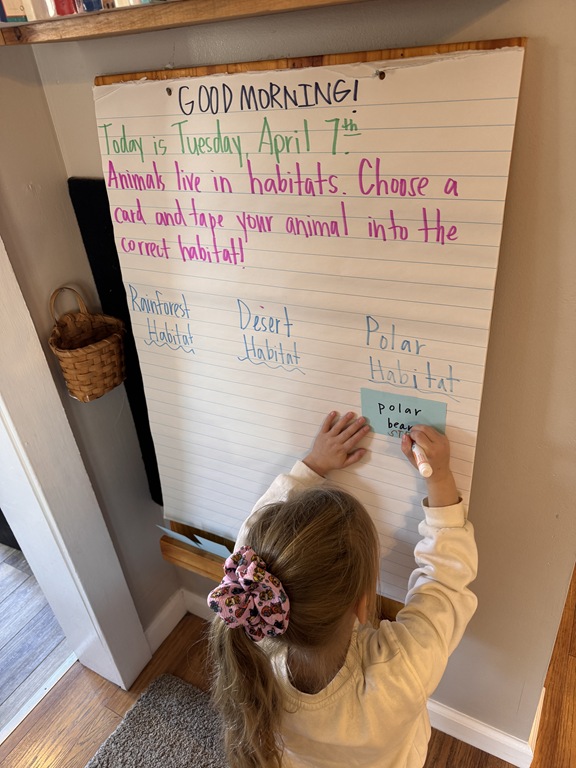 GOOD MORNING!
Today is Tuesday, April 7th.
Animals live in habitats. Choose a
card and tape your animal into the
correct habitat!
Rainforest
Habitat
Desert
Habitat
Polar
Habitat
polar
bear